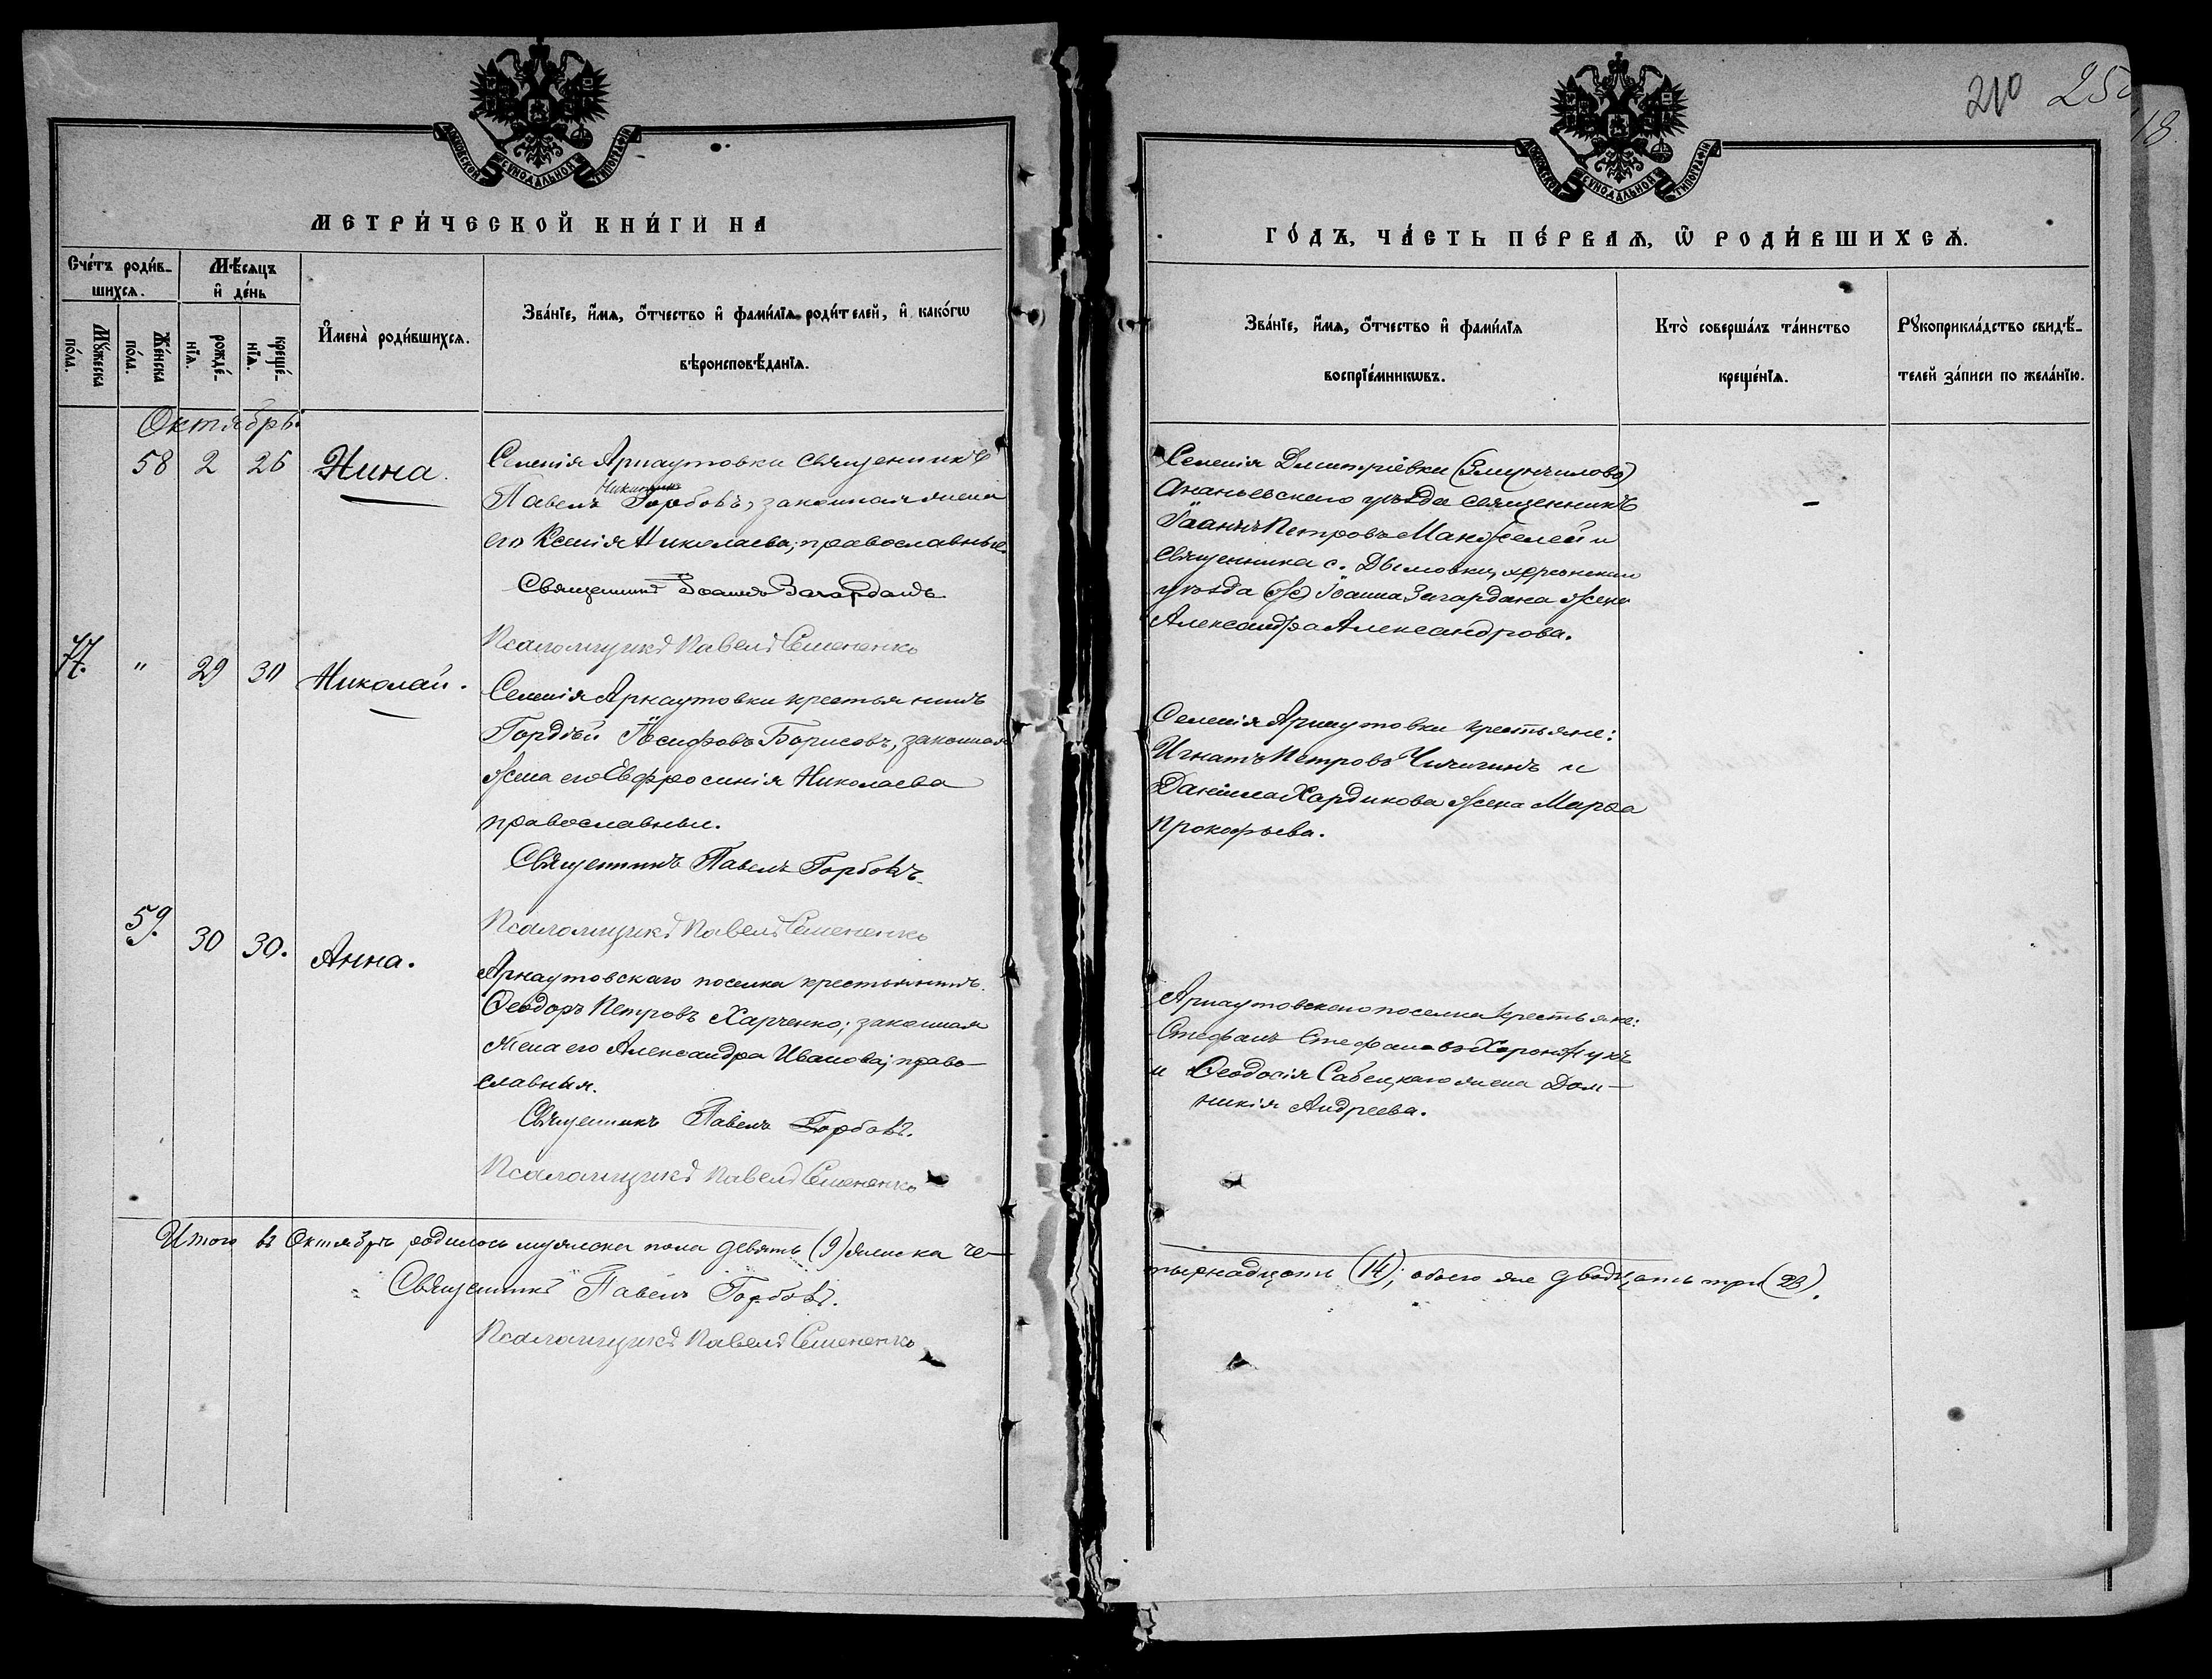 МОСКОВСКОЙ СѴНОДАЛЬНОЙ ТИПОГРАФІИ
МЕТРИ́ЧЕСКОЙ КНИ́ГИ НА
Сче́тъ роди́в-
шихсѧ.
Мѣ́сѧцъ
и҆ де́нь
Мꙋ́жеска
по́ла.
Же́нска
по́ла.
рожде́-
нїѧ.
креще́-
нїѧ.
И҆мена̀ роди́вшихсѧ.
Зва́нїе, и҆́мѧ, ѻ҆́тчество и҆ фами́лїѧ роди́телей, и҆ како́гѡ
вѣроисповѣ́данїѧ.
Октябрь.
58 2 26 Нина.
Селенія Арнаутовки священникъ
Павелъ Горбовъ, законная жена
его Ксенія Николаева; православные.
Священникъ Іоаннъ Загарданъ
Псаломщикъ Павелъ Семененко
77. " 29 30 Николай.
Селенія Арнаутовки крестьянинъ
Гордѣй Іосифовъ Борисовъ, законная
жена его Евфросинія Николаева
православные.
Священникъ Павелъ Горбовъ.
Псаломщикъ Павелъ Семененко
59. 30 30. Анна.
Арнаутовскаго поселка крестьянинъ
Ѳеодоръ Петровъ Харченко; законная
жена его Александра Иванова; право-
славныя.
Священникъ Павелъ Горбовъ.
Псаломщикъ Павелъ Семененко
Итого въ Октябрѣ родилось мужска пола девять (9) женска че-
Священникъ Павелъ Горбовъ.
Псаломщикъ Павелъ Семененко
210 25
18
МОСКОВСКОЙ СѴНОДАЛЬНОЙ ТИПОГРАФІИ
ГО́ДЪ, ЧА́СТЬ ПЕ́РВАѦ, Ѡ҆ РОДИ́ВШИХСѦ.
Зва́нїе, и҆́мѧ, ѻ҆́тчество и҆ фами́лїѧ
воспрїе́мникѡвъ.
Кто̀ соверша́лъ та́инство
креще́нїѧ.
Рꙋкоприкла́дство свидѣ́-
телей за́писи по жела́нїю.
Селенія Дмитріевки
Ананьевскаго уѣзда священникъ
Іоаннъ Петровъ Манжелей и
священника с. Дымовки, херсонскаго
уѣзда Іоанна Загардана жена
Александра Александрова.
Селенія Арнаутовки крестьяне:
Игнатъ Петровъ и
Даніила Хардикова жена Марѳа
Прокофьева.
Арнаутовскаго поселка крестьяне:
Стефанъ Стефановъ
и Ѳеодосія жена Дом-
никія Андреева.
тырнадцать (14); обоего же двадцать три (23).